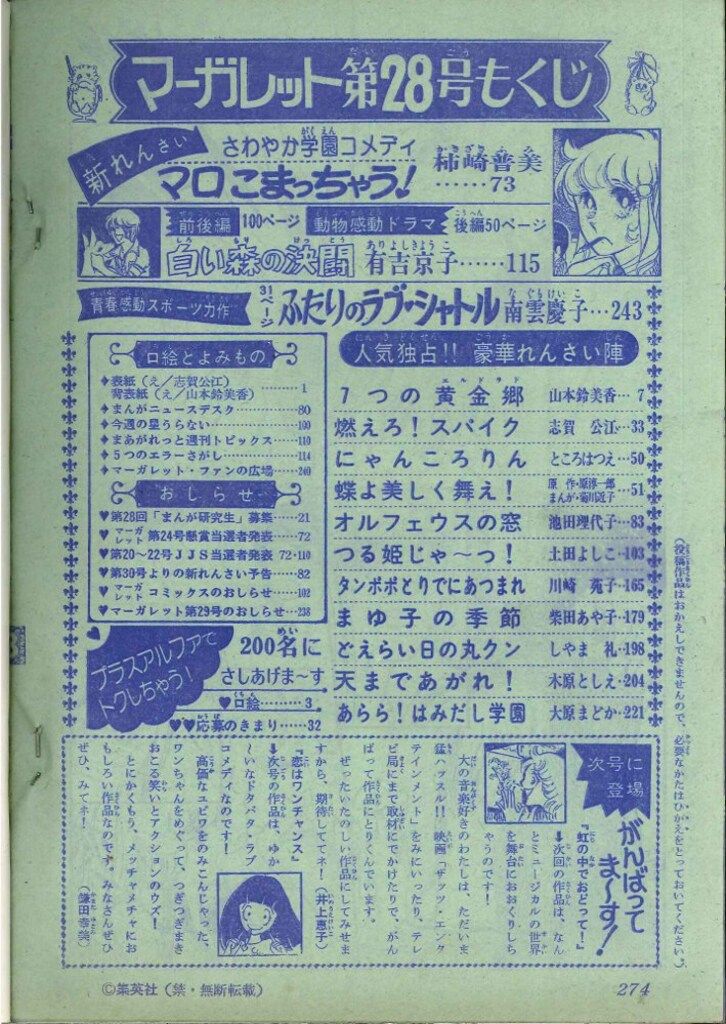 マーガレット第28号もくじ
新れんさい
さわやか学園コメディ
マロこまっちゃう!
柿崎普美
……73
前後編 100ページ 動物感動ドラマ 後編50ページ
白い森の決闘 有吉京子……115
青春感動スポーツ力作 31ページ ふたりのラブ・シャトル 南雲慶子…243
口絵とよみもの
♦表紙(え/志賀公江)
背表紙(え/山本鈴美香)………1
♦まんがニュースデスク………80
♦今週の星うらない………100
♦まあがれっと週刊トピックス………110
♦5つのエラーさがし………114
♦マーガレット・ファンの広場………240
おしらせ
♥第28回「まんが研究生」募集……21
♥マーガレット第24号懸賞当選者発表……72
♥第20〜22号JJS当選者発表 72・110
♥第30号よりの新れんさい予告……82
♥マーガレットコミックスのおしらせ……102
♥マーガレット第29号のおしらせ…238
プラスアルファで
トクしちゃう!
200名に
さしあげま〜す
♥口絵………3
♥♥応募のきまり………32
人気独占!! 豪華れんさい陣
7つの黄金郷 山本鈴美香…7
燃えろ!スパイク 志賀 公江…33
にゃんころりん ところはつえ…50
蝶よ美しく舞え! 原作・原淳一郎 まんが・菊川近子…51
オルフェウスの窓 池田理代子…83
つる姫じゃ〜っ! 土田よしこ…103
タンポポとりでにあつまれ 川崎 苑子…165
まゆ子の季節 柴田あや子…179
どえらい日の丸クン しやま 礼…198
天まであがれ! 木原としえ…204
あらら!はみだし学園 大原まどか…221
(投稿作品はおかえしできませんので、必要なかたはひかえをとっておいてください。)
次号に
登場
がんばって
ま〜す!
『虹の中でおどって!』
↓次回の作品は、なん
とミュージカルの世界
を舞台におおくりしち
ゃうのです!
大の音楽好きのわたしは、ただいま
猛ハッスル!! 映画「ザッツ・エンタ
テインメント」をみにいったり、テレ
ビ局にまで取材にでかけたりで、がん
ばって作品にとりくんでいます。
ぜったいたのしい作品にしてみせま
すから、期待しててネ! (井上恵子)
『恋はワンチャンス』
↓次号の作品は、ゆか
〜いなドタバタ・ラブ
コメディなのです!
高価なユビワをのみこんじゃった、
ワンちゃんをめぐって、つぎつぎまき
おこる笑いとアクションのウズ!
とにかくもう、メッチャメチャにお
もしろい作品なのです。みなさんぜひ
ぜひ、みてネ! (鎌田幸美)
©集英社(禁・無断転載)
274